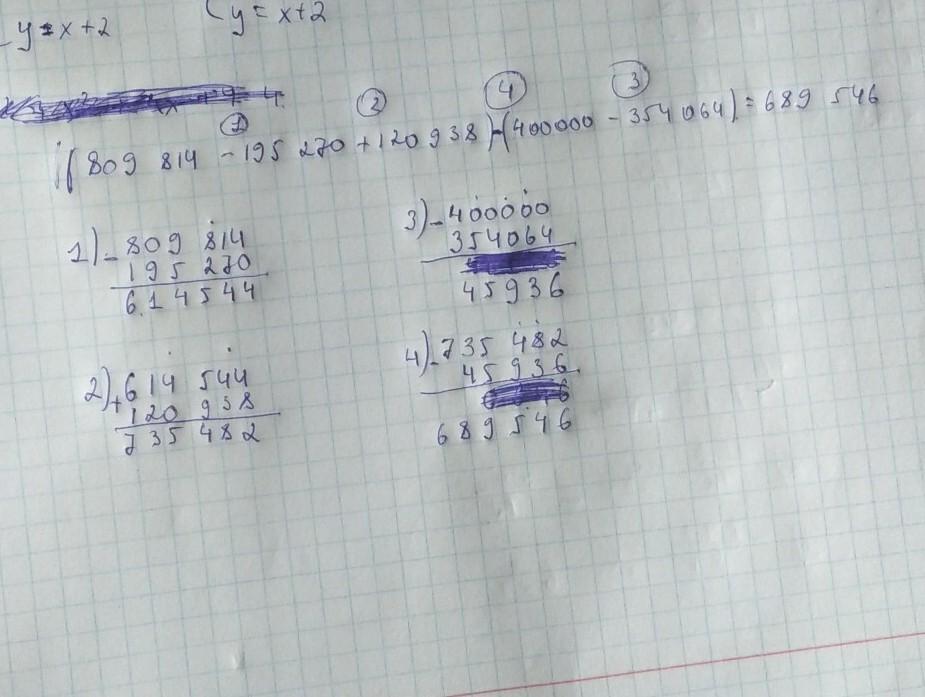 y = x + 2
y = x + 2
1 2 4 3
(809 814 - 195 270 + 120 938) - (400000 - 354 064) = 689 546
1) - 809 814
195 270
614 544
2) + 614 544
120 938
735 482
3) - 400000
354064
45936
4) - 735 482
45 936
689 546